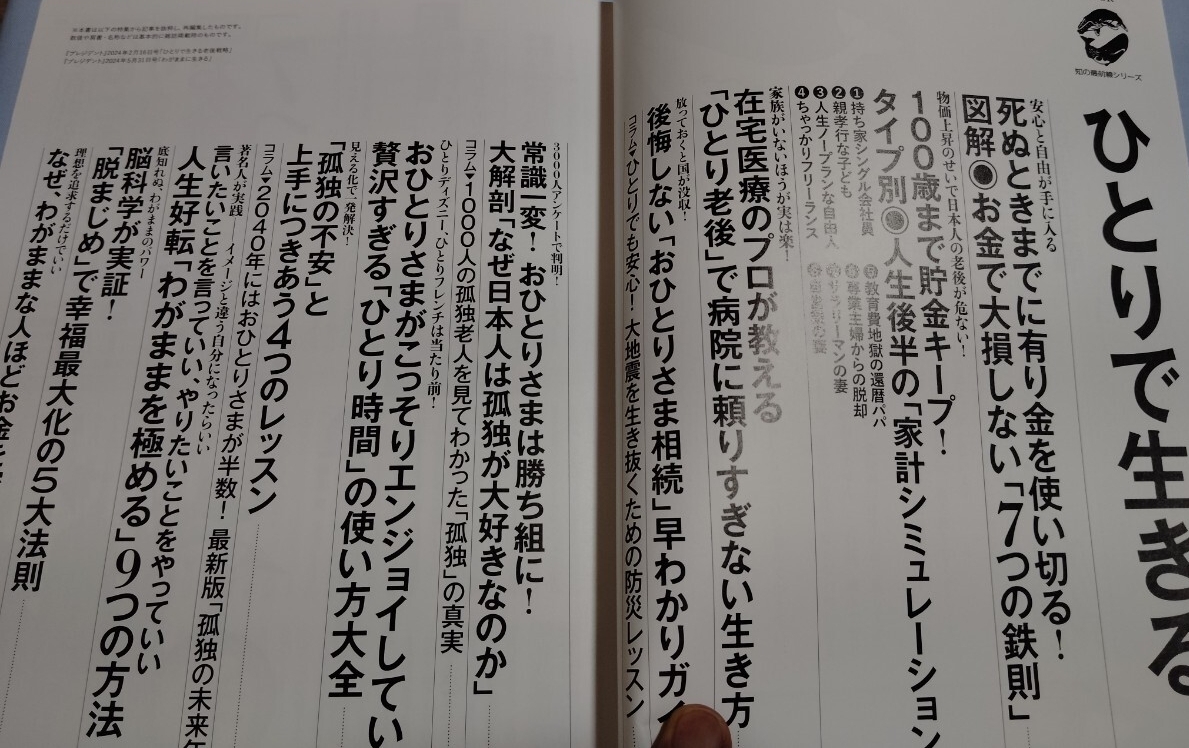 知の最前線シリーズ
ひとりで生きる
安心と自由が手に入る
死ぬときまでに有り金を使い切る！
図解◉お金で大損しない「7つの鉄則」
物価上昇のせいで日本人の老後が危ない！
100歳まで貯金キープ！
タイプ別◉人生後半の「家計シミュレーション
❶持ち家シングル会社員
❷親孝行な子ども
❸人生ノープランな自由人
❹ちゃっかりフリーランス
❺教育費地獄の還暦パパ
❻専業主婦からの脱却
家族がいないほうが実は楽！
在宅医療のプロが教える
「ひとり老後」で病院に頼りすぎない生き方
放っておくと国が没収！
後悔しない「おひとりさま相続」早わかりガイ
コラム▼ひとりでも安心！大地震を生き抜くための防災レッスン
3000人アンケートで判明！
常識一変！おひとりさまは勝ち組に！
大解剖「なぜ日本人は孤独が大好きなのか」
コラム▼1000人の孤独老人を見てわかった「孤独」の真実
ひとりディズニー、ひとりフレンチは当たり前！
おひとりさまがこっそりエンジョイしてい
贅沢すぎる「ひとり時間」の使い方大全
見える化で一発解決！
「孤独の不安」と
上手につきあう4つのレッスン
コラム▼2040年にはおひとりさまが半数！最新版「孤独の未来年
著名人が実践 イメージと違う自分になったらいい
言いたいことを言っていい、やりたいことをやっていい
人生好転「わがままを極める」9つの方法
底知れぬ、わがままのパワー
脳科学が実証！
「脱まじめ」で幸福最大化の5大法則
理想を追求するだけでいい
なぜ、わがままな人ほどお金
※本書は以下の特集から記事を抜粋し、再編集したものです。
『プレジデント』2024年2月16日号「ひとりで生きる老後戦略」
『プレジデント』2024年5月31日号「わがままに生きる」